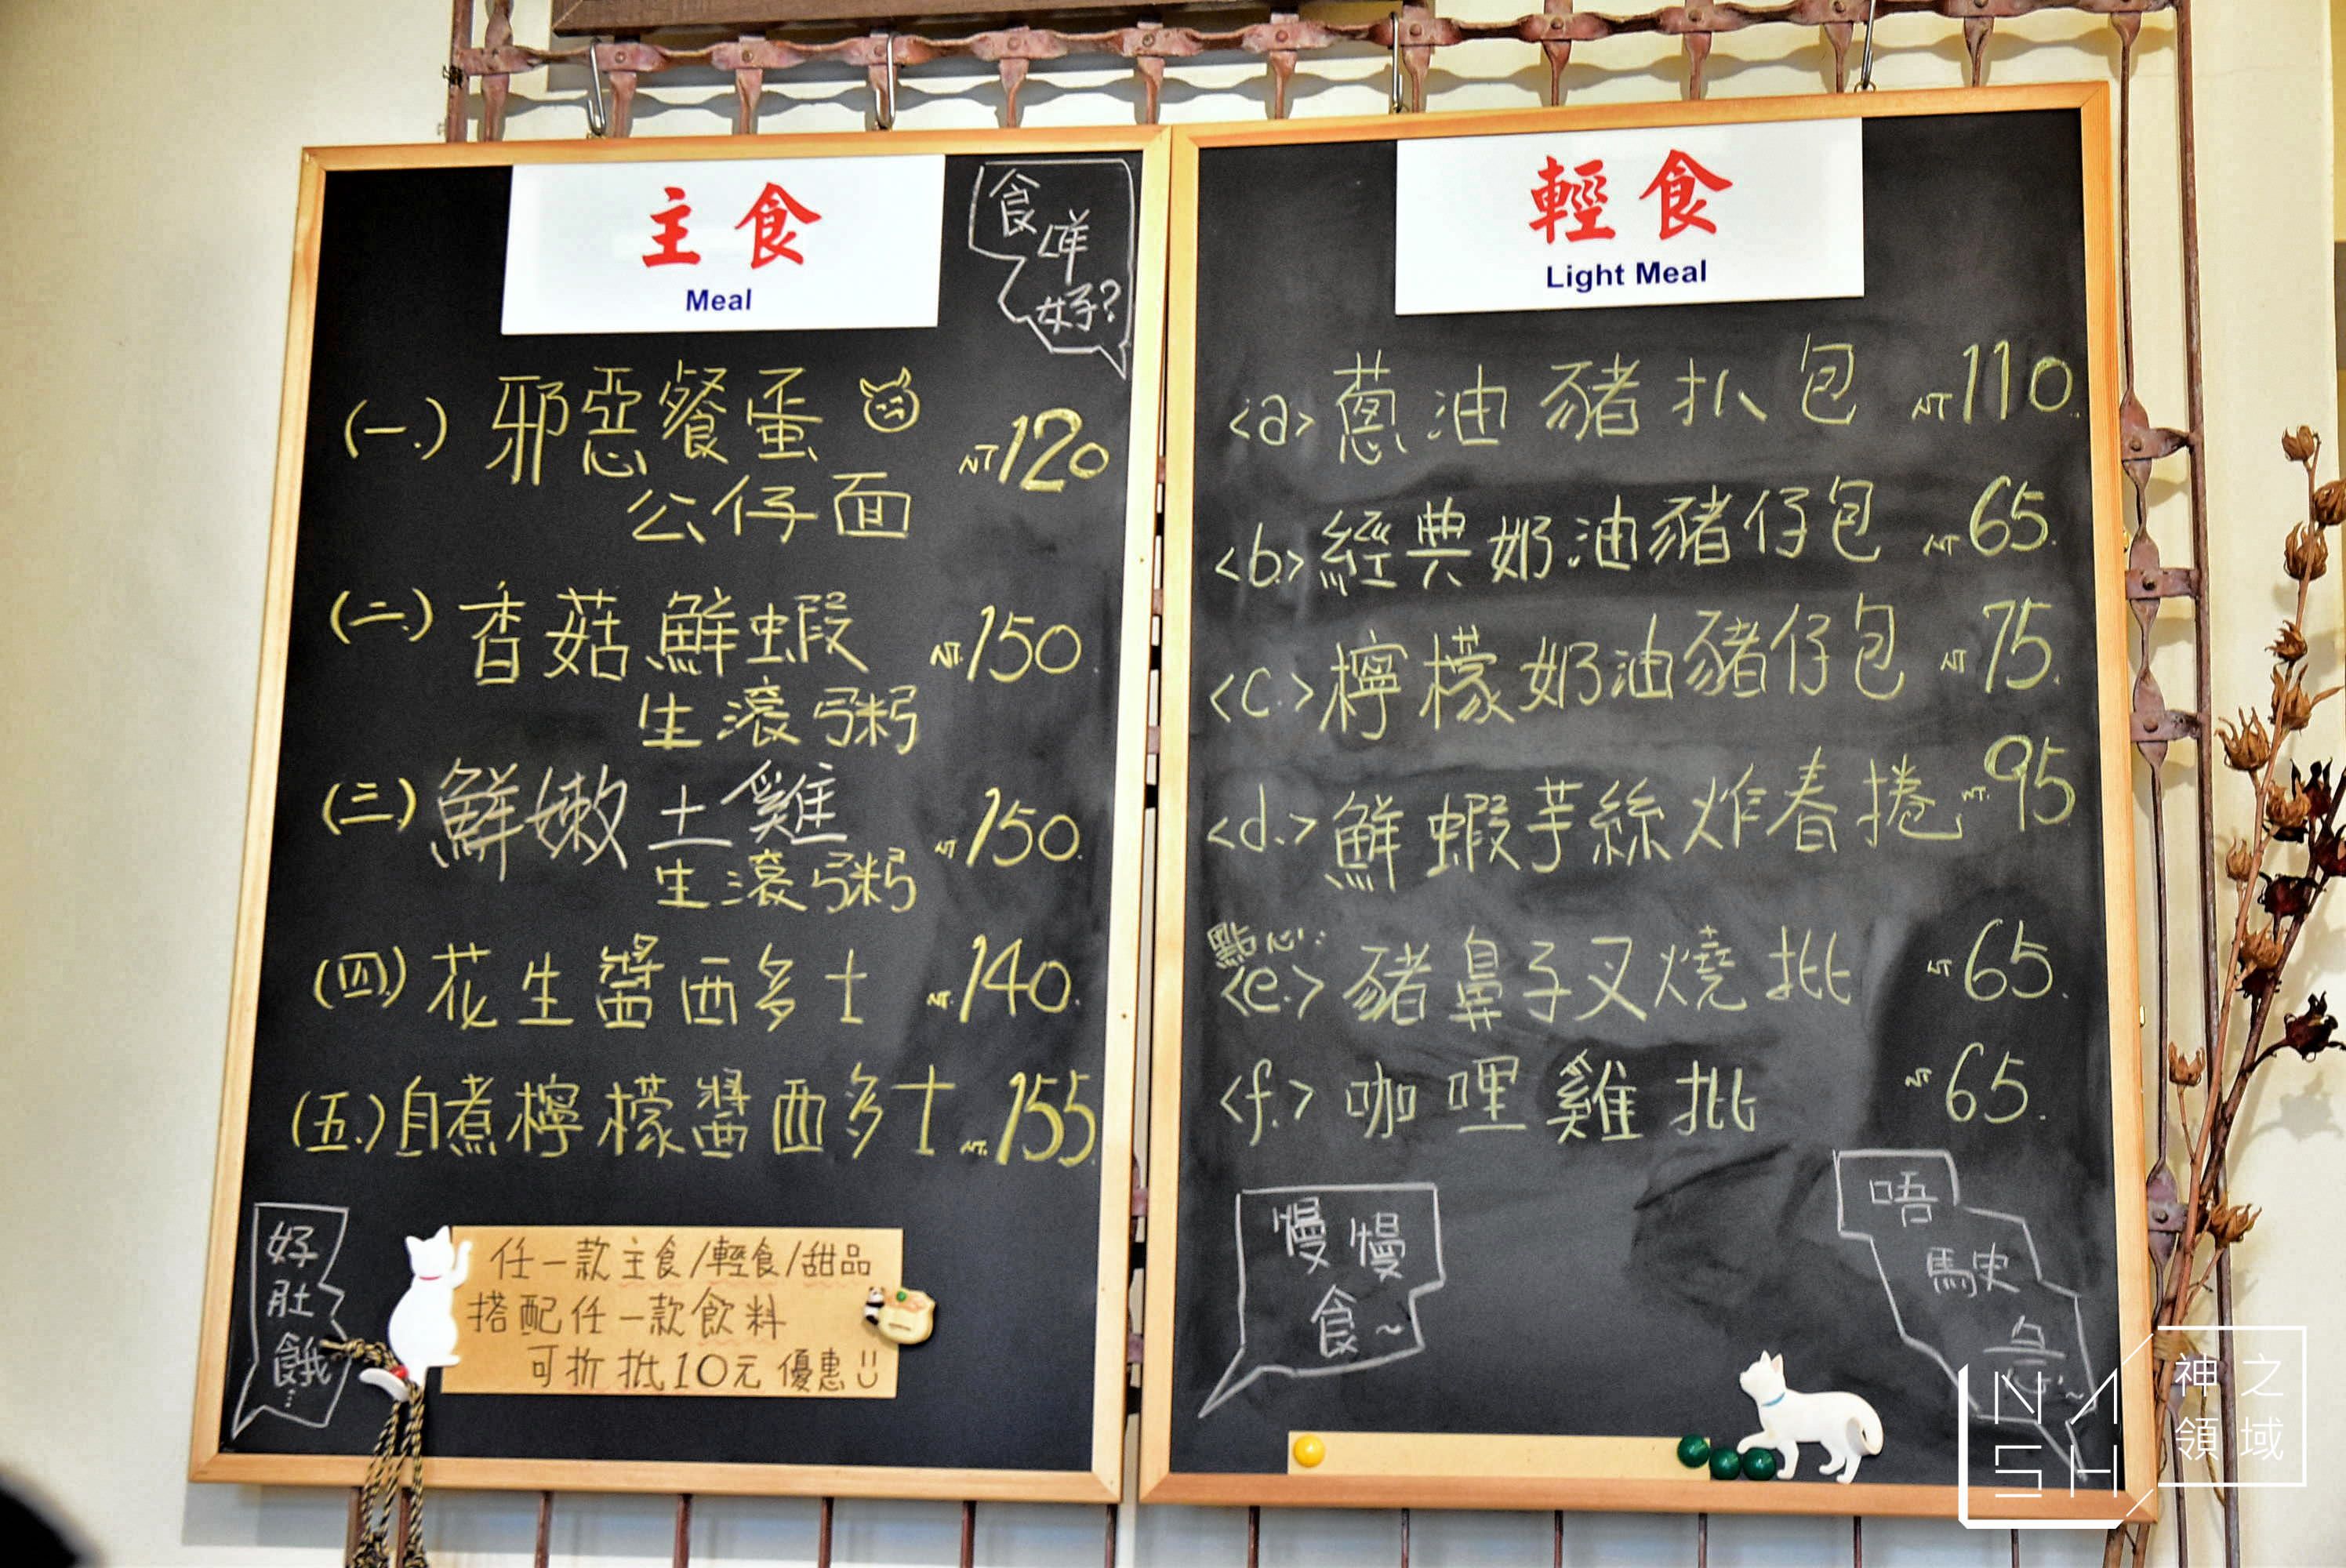 主食
Meal
食
咩
好?
(一.) 邪惡餐蛋
公仔面 NT120
(二.) 香菇鮮蝦 NT.150.
生滾粥
(三) 鮮嫩土雞 NT150.
生滾粥
(四) 花生醬西多士 NT.140.
(五.) 自煮檸檬醬西多士 NT.155.
好
肚
餓...
任一款主食/輕食/甜品
搭配任一款飲料
可折抵10元優惠!!
輕食
Light Meal
<a> 蔥油豬扒包 NT110.
<b.> 經典奶油豬仔包 NT65.
<c.> 檸檬奶油豬仔包 NT75.
<d.> 鮮蝦芋絲炸春捲 NT.95
點心:
<e.> 豬鼻子叉燒批 NT65.
<f.> 咖哩雞批 NT65.
慢慢
食~
唔
駛
急~
NASH
神之
領域